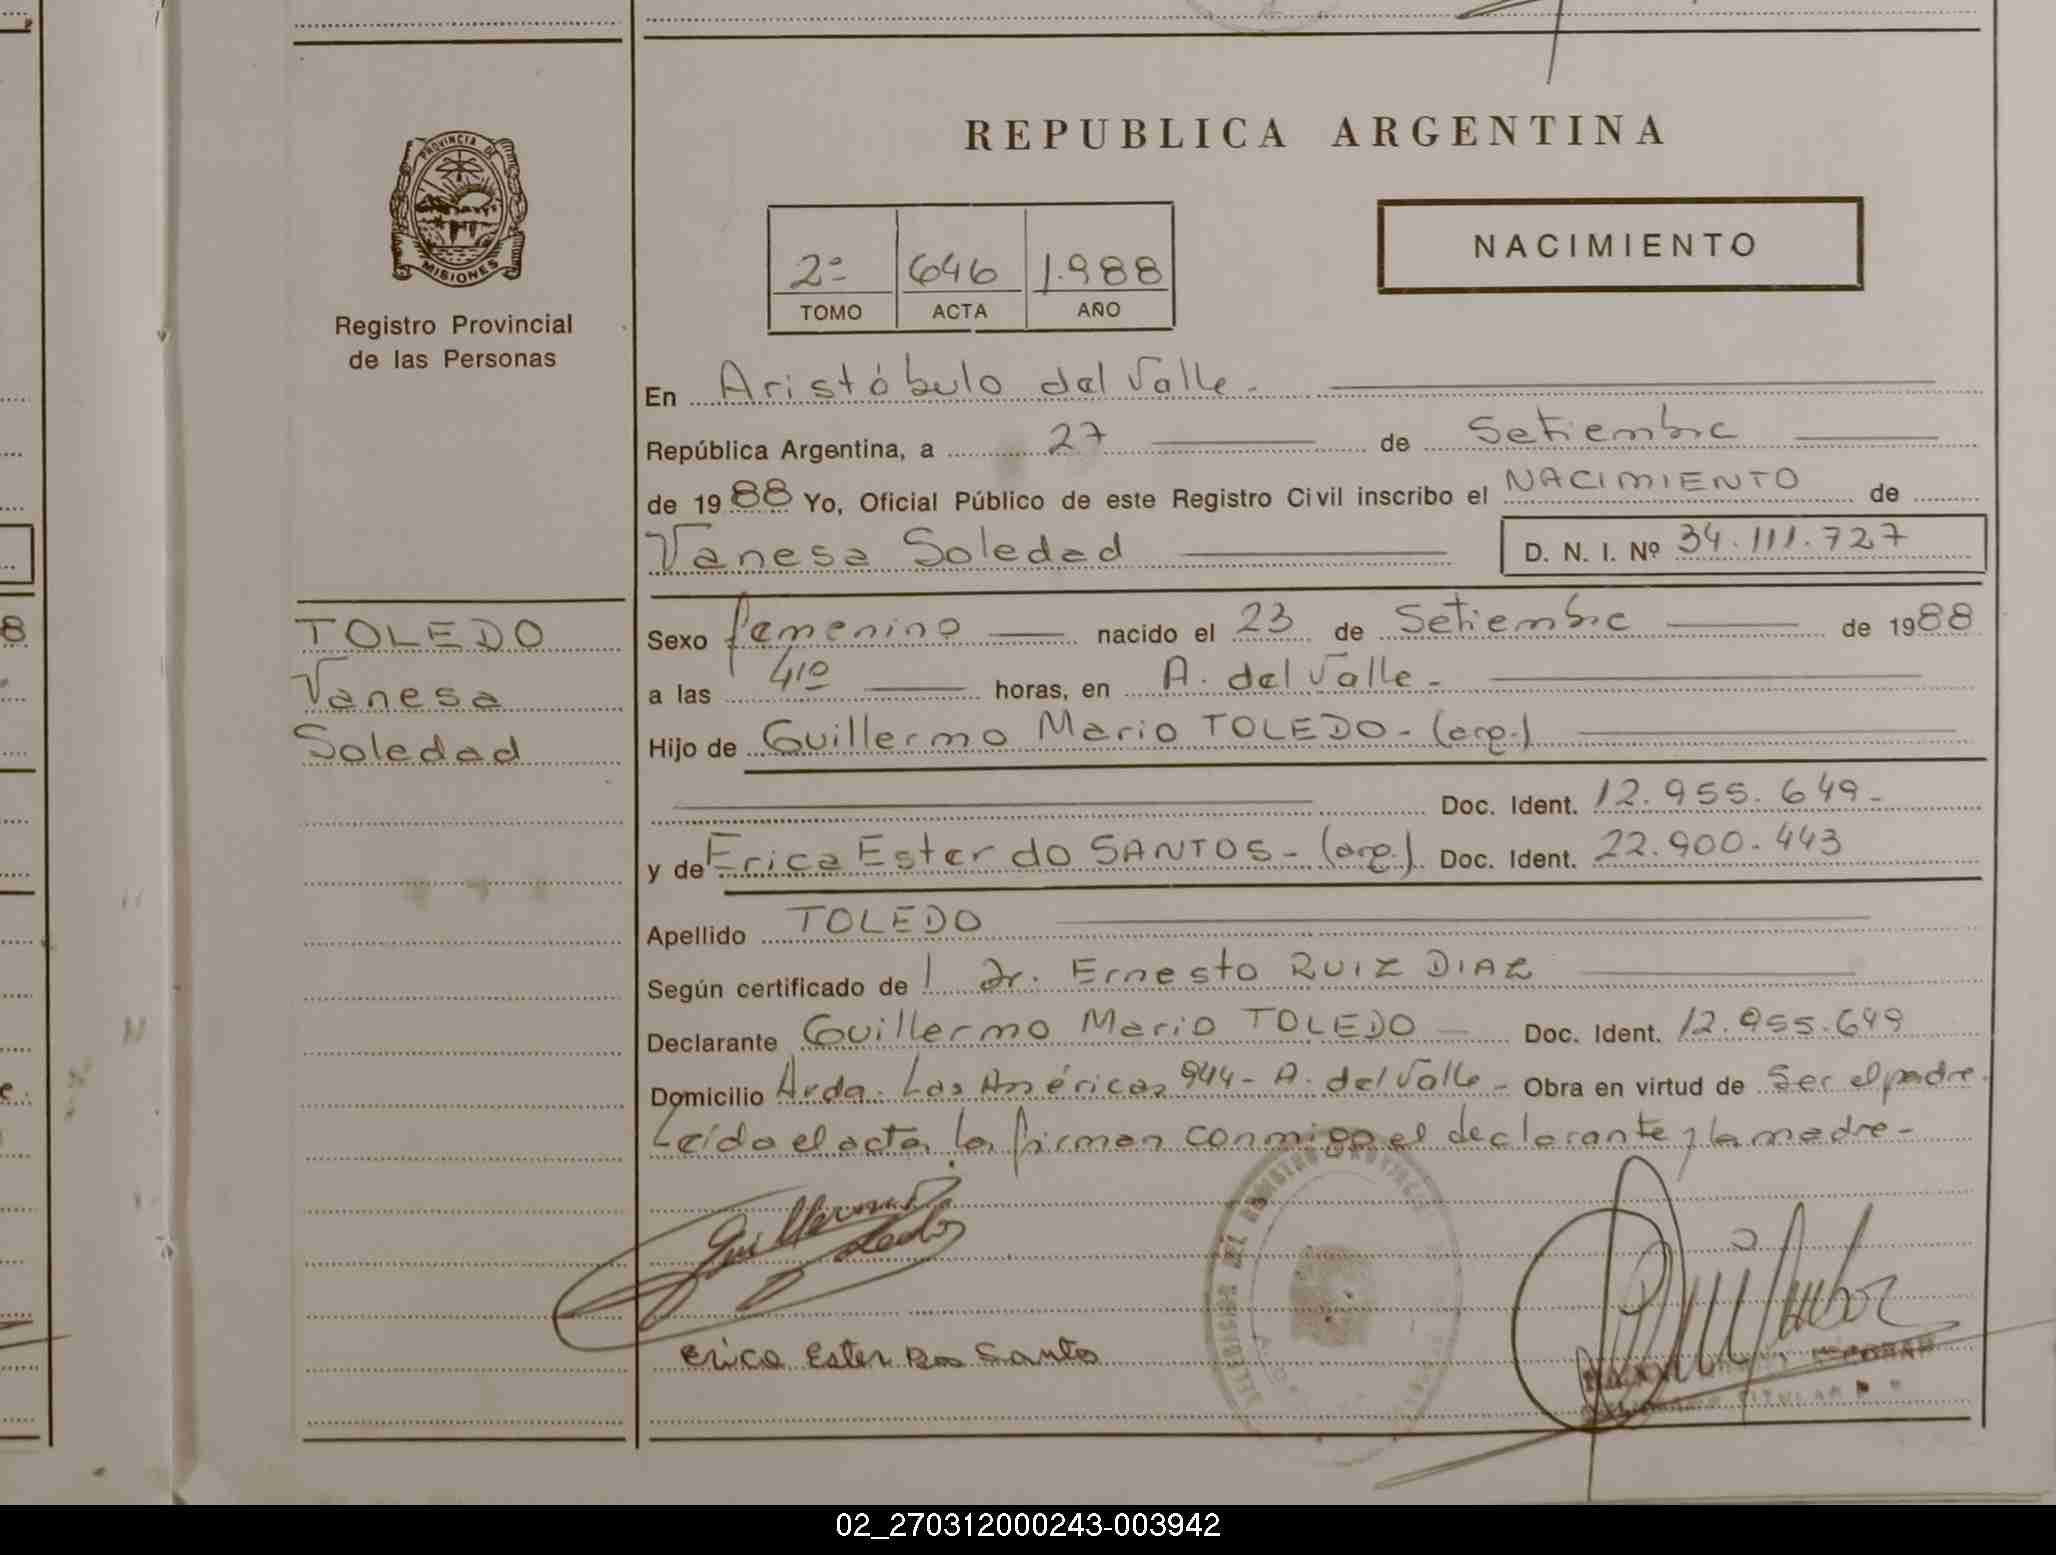 REPUBLICA ARGENTINA
PROVINCIA DE
MISIONES
Registro Provincial
de las Personas
2º 646 1.988
TOMO ACTA AÑO
NACIMIENTO
En Aristóbulo del Valle.
República Argentina, a 27 de Setiembre
de 1988 Yo, Oficial Público de este Registro Civil inscribo el NACIMIENTO de
Vanesa Soledad D. N. I. Nº 34.111.727
TOLEDO
Vanesa
Soledad
Sexo femenino nacido el 23 de Setiembre de 1988
a las 410 horas, en A. del Valle.
Hijo de Guillermo Mario TOLEDO. (arg.)
Doc. Ident. 12.955.649.
y de Erica Ester do SANTOS - (arg.) Doc. Ident. 22.900.443
Apellido TOLEDO
Según certificado de Dr. Ernesto RUIZ DIAZ
Declarante Guillermo Mario TOLEDO Doc. Ident. 12.955.649
Domicilio Avda. Las Américas 944 - A. del Valle - Obra en virtud de Ser el padre.
Leída el acta, la firman conmigo el declarante y la madre -
Guillermo Toledo
Erica Ester Dos Santos
TITULAR
02_270312000243-003942